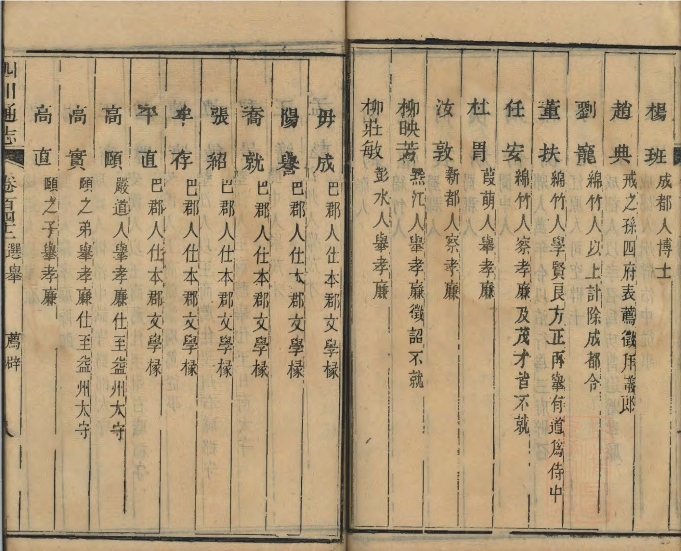 楊班 成都人博士
趙典 戒之孫四府表薦徵拜議郎
劉寵 綿竹人以上計除成都令
董扶 綿竹人學賢良方正再舉有道爲侍中
任安 綿竹人察孝廉及茂才皆不就
杜胃 葭萌人舉孝廉
汝敦 新都人察孝廉
柳映若 綦江人舉孝廉徵詔不就
柳莊敏 彭水人舉孝廉
毋成 巴郡人仕本郡文學椽
陽譽 巴郡人仕本郡文學椽
喬就 巴郡人仕本郡文學椽
張紹 巴郡人仕本郡文學椽
牟存 巴郡人仕本郡文學椽
平直 巴郡人仕本郡文學椽
高頤 嚴道人舉孝廉仕至益州太守
高實 頤之弟舉孝廉仕至益州太守
高直 頤之子舉孝廉
四川通志 卷百 選舉 薦辟 八